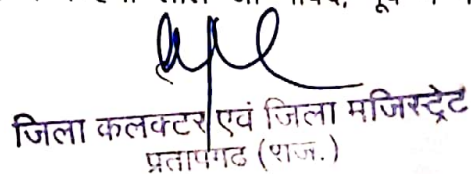 जिला कलक्टर एवं जिला मजिस्ट्रेट
प्रतापगढ (राज.)